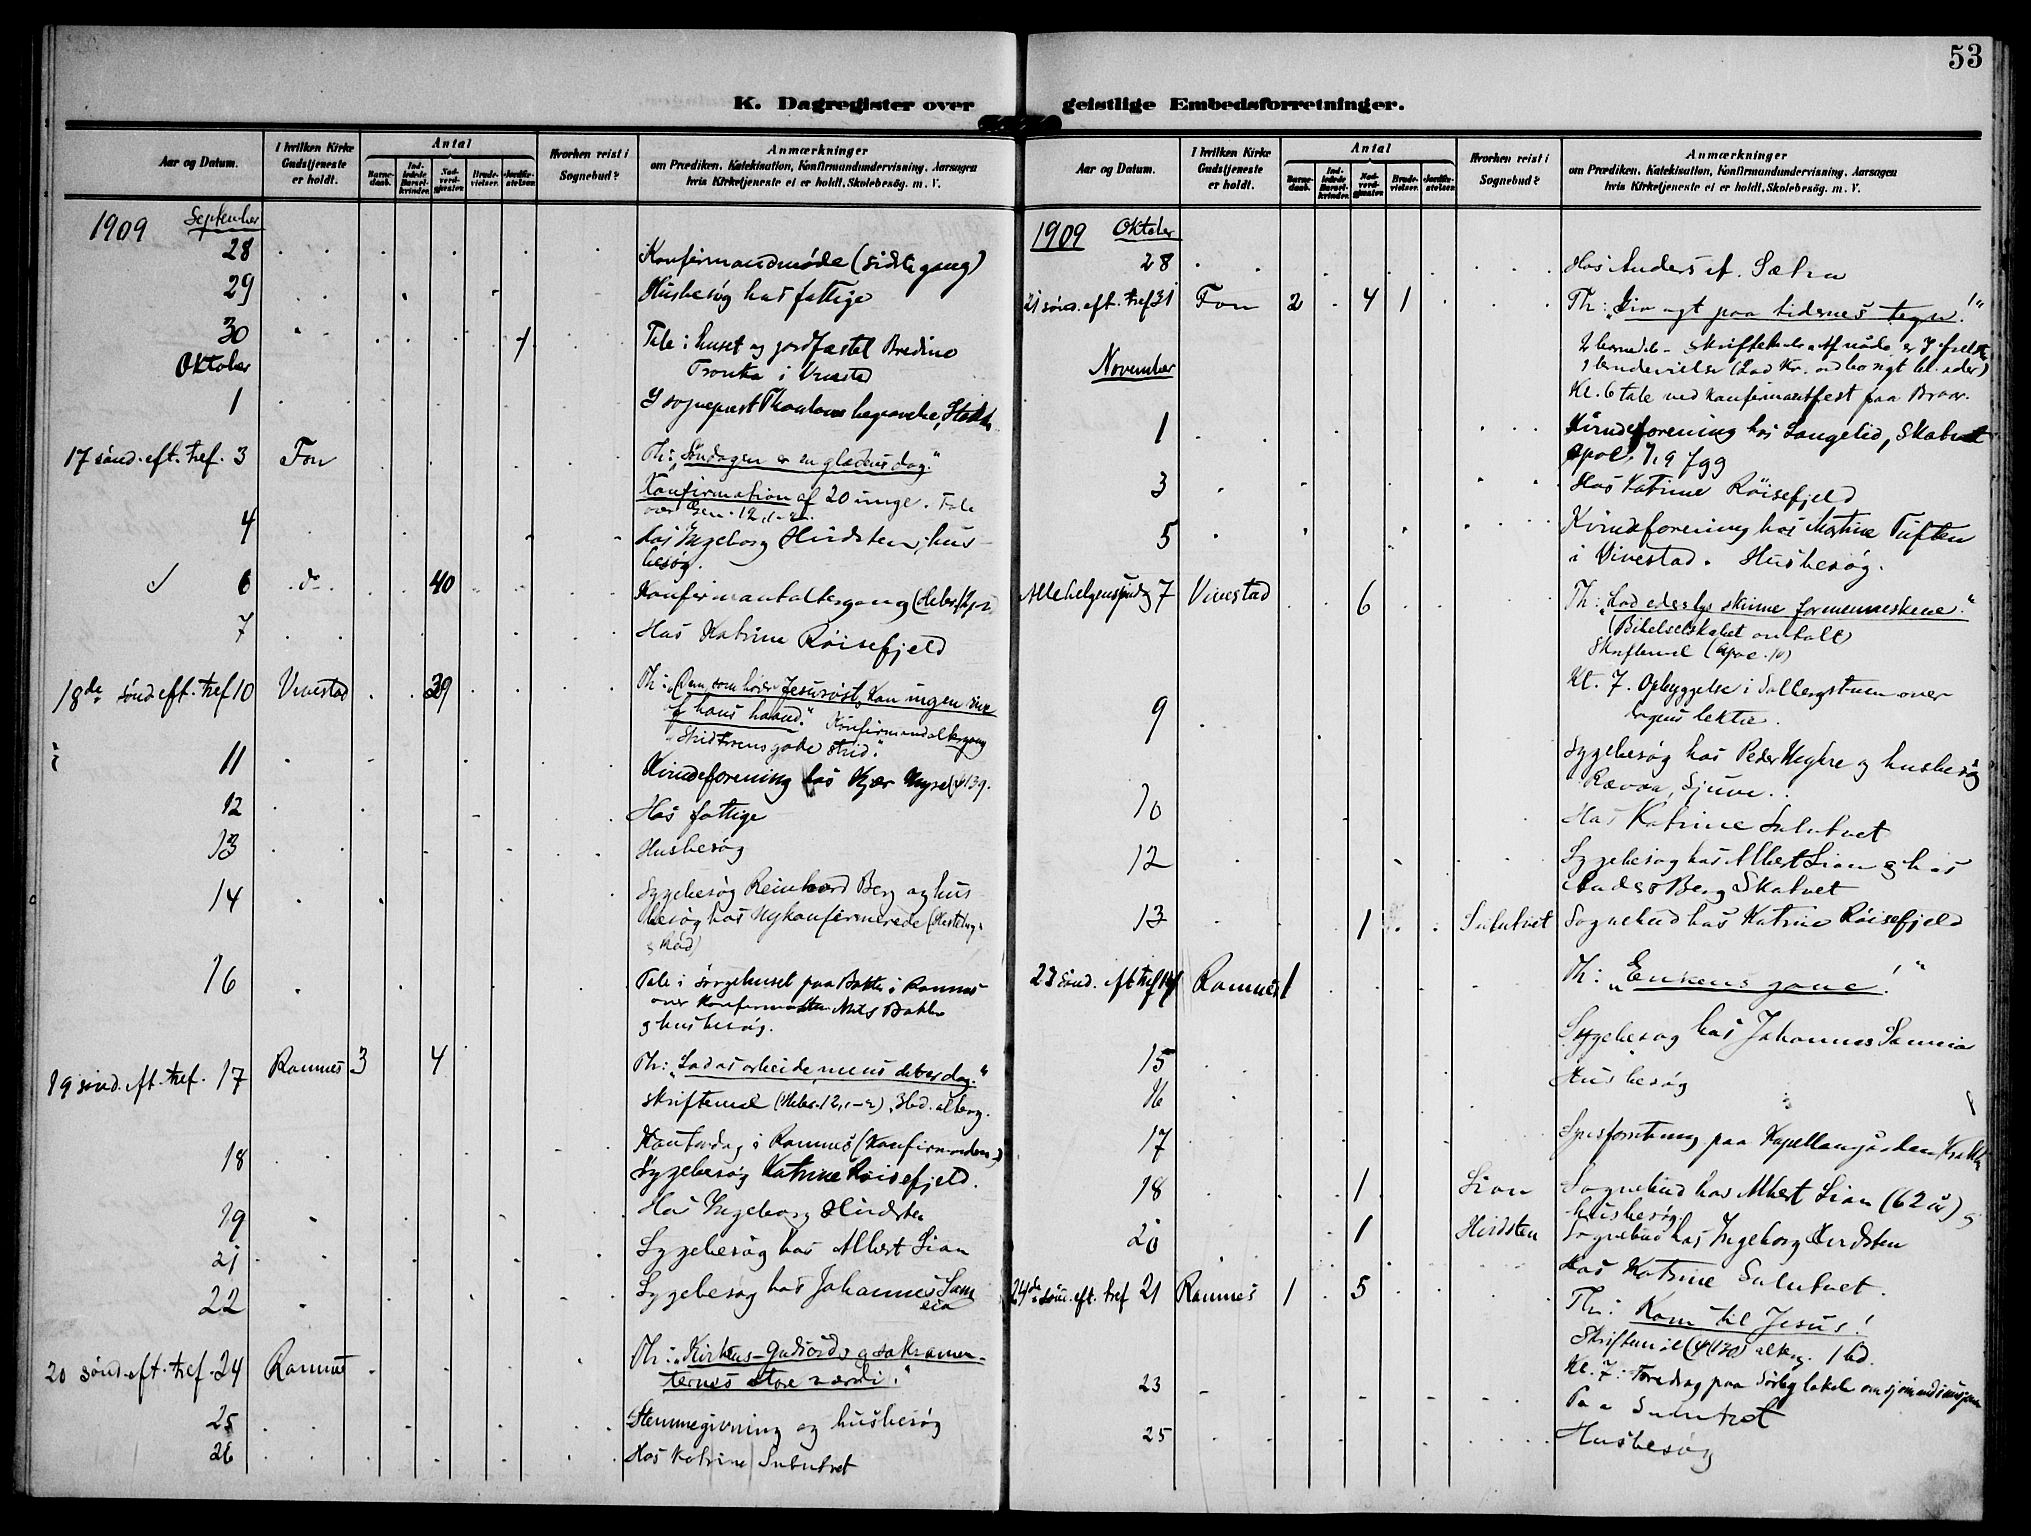 53
K. Dagregister over geistlige Embedsforretninger.
Aar og Datum.
I hvilken Kirke Gudstjeneste er holdt.
Antal
Barnedaab.
Indledede Barselkvinder.
Nadverdgjæster.
Brudevielser.
Jordfæstelser.
Hvorhen reist i Sognebud?
Anmærkninger
om Prædiken, Katekisation, Konfirmandundervisning, Aarsagen
hvis Kirketjeneste ei er holdt, Skolebesög. m. V.
1909 September
28 Konfirmandmøde (sidste gang)
29 Husbesøg hos fattige
30 1 Tale i huset og jordfæstet Bredine
Oktober
i Vivestad
1 I sogneprest begravelse,
17 sønd. eft. tref. 3 Fon Th: "Søndagen er en glædens dag."
Konfirmation af 20 unge. Tale
over Gen. 12,1-2.
4 Hos Ingeborg Hvidsten, hus-
besøg.
6 do 40 Konfirmantaltergang
7 Hos Katrine Røisefjeld
18de sønd. eft. tref 10 Vivestad 39 Th: "Dem som hører Jesu røst, kan ingen rive
af hans haand." Konfirmandaltergang
"Strid troens gode strid."
11 Kvindeforening hos Kjær Myre
12 Hos fattige
13 Husbesøg
14 Sygebesøg Reinhard Berg og hus-
besøg hos Nykonfirmerede
16 Tale i sørgehuset paa Bakke i Ramnes
over konfirmanten Nils Bakke
og husbesøg.
19 sønd. eft. tref. 17 Ramnes 3 4 Th: "Lad os arbeide mens det er dag."
Skriftemål (Hebr. 12,1-2), 3 bd. alterg.
18 Kontordag i Ramnes (Konfirmanden)
Sygebesøg Katrine Røisefjeld.
19 Hos Ingeborg Hvidsten
21 Sygebesøg hos Albert Lian
22 Sygebesøg hos Johannes
20 sønd. eft. tref. 24 Ramnes Th: "Kirkens - Guds ords og sakramen-
ternes store værdi."
25 Stemmegivning og husbesøg
26 Hos Katrine Sulutvet
K. Dagregister over geistlige Embedsforretninger.
Aar og Datum.
I hvilken Kirke Gudstjeneste er holdt.
Antal
Barnedaab.
Indledede Barselkvinder.
Nadverdgjæster.
Brudevielser.
Jordfæstelser.
Hvorhen reist i Sognebud?
Anmærkninger
om Prædiken, Katekisation, Konfirmandundervisning, Aarsagen
hvis Kirketjeneste ei er holdt, Skolebesög. m. V.
1909 Oktober
28 Hos Anders
21 sønd. eft. tref 31 Fon 2 4 1 Th: "Giv agt paa tidernes tegn!"
November
Kl. 6 tale ved konfirmantfest paa
1 Kvindeforening hos Langelid,
Apoc. 7,9 fgg
3 Hos Katrine Røisefjeld
5 Kvindeforening hos Martine Tuften
i Vivestad. Husbesøg.
Allehelgensønd. 7 Vivestad 6 Th: "Lad eders lys skinne for menneskene."
(Bibelselskabet omtalt)
Skriftemål (Apoc. 10)
Kl. 7. Opbyggelse i Solbergstuen over
dagens lektie.
9 Sygebesøg hos Peder og husbesøg
10 Hos Katrine Sulutvet
12 Sygebesøg hos Albert Lian og hos
Anders Berg Skatvet
13 1 Sulutvet Sognebud hos Katrine Røisefjeld
23 sønd. eft tref 14 Ramnes 1 Th: "Enkens gave!"
15 Sygebesøg hos Johannes
16 Husbesøg
17 paa Kapellangården
18 1 Lian Sognebud hos Albert Lian (62 år) og
husbesøg
20 1 Hvidsten Sognebud hos Ingeborg Hvidsten
Hos Katrine Sulutvet.
24de sønd. eft. tref 21 Ramnes 1 5 Th: Kom til Jesus!
Skriftemål alterg. 1 bd.
Kl. 7: Foredrag paa Sørby lokale om sjømandsmisjonen
23 Paa Sulutvet
25 Husbesøg